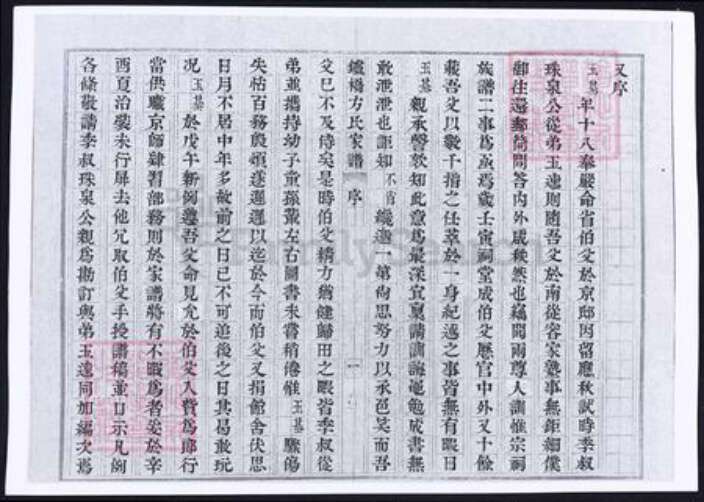 又序
玉基年十八奉嚴命省伯父於京邸因留應秋試時季叔
珠泉公從弟玉遠則隨吾父於南從容家塾事無鉅細僕
御往還郵筒問答內外咸秩然也竊聞兩尊人訓惟宗祠
族譜二事為亟焉歲壬寅祠堂成伯父歷官中外又十餘
載吾父以數千指之任萃於一身紀述之事皆無有暇日
玉基親承謦欬知此意為最深宜稟請訓誨黽勉成書無
敢泄泄也詎知不肖纔通一第尚思努力以承色笑而吾
鑑橋方氏家譜 序 一
父已不及侍矣是時伯父精力猶健歸田之暇皆季叔從
弟並攜持幼子童孫戲左右圖書未嘗稍倦惟玉基驟傷
失怙百務叢頓遂遷延以迄於今而伯父又捐館舍伏思
日月不居中年多故前之日已不可追後之日其曷敢玩
況玉基於戊午新例遵吾父命見允於伯父入貲為郎行
當供職京師雖習部務則於家譜將有不暇為者矣於辛
酉夏治裝未行屏去他冗取伯父手授譜稿並口示凡例
各條敬請季叔珠泉公親為勘訂與弟玉遠同加編次焉